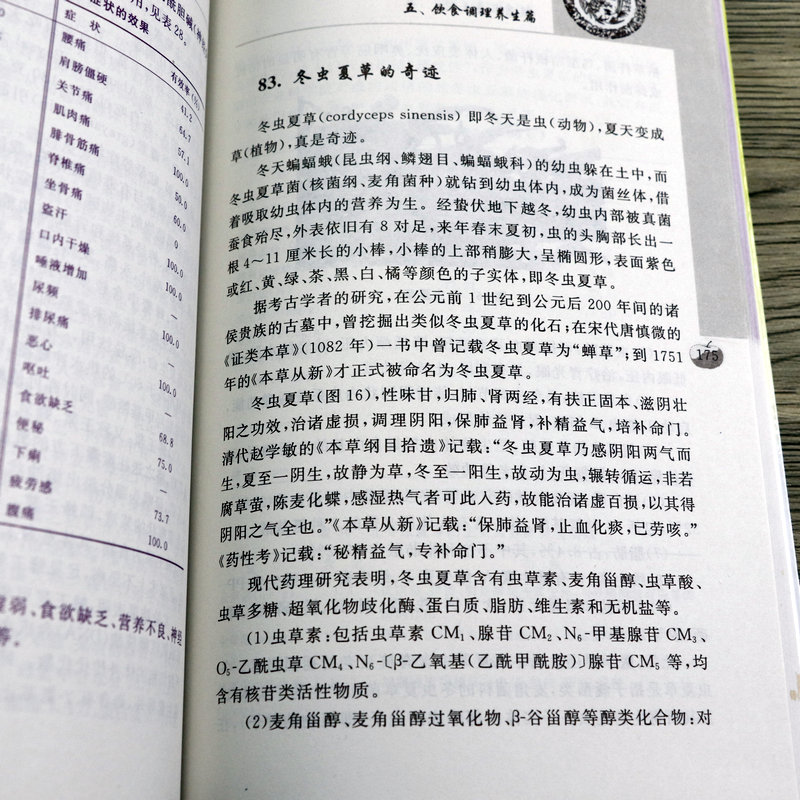 用,见表28。
症状的效果
症 状
有效率(%)
腰痛
41.2
肩膀僵硬
64.7
关节痛
57.1
肌肉痛
100.0
腓骨筋痛
50.0
脊椎痛
60.0
坐骨痛
0
盗汗
100.0
口内干燥
100.0
唾液增加
100.0
尿频
—
排尿痛
100.0
恶心
—
呕吐
100.0
食欲缺乏
—
便秘
68.8
下痢
75.0
疲劳感
—
腹痛
73.7
100.0
虚弱、食欲缺乏、营养不良、神经
等。
五、饮食调理养生篇
83. 冬虫夏草的奇迹
冬虫夏草(cordyceps sinensis) 即冬天是虫(动物),夏天变成
草(植物),真是奇迹。
冬天蝙蝠蛾(昆虫纲、鳞翅目、蝙蝠蛾科)的幼虫躲在土中,而
冬虫夏草菌(核菌纲、麦角菌种)就钻到幼虫体内,成为菌丝体,借
着吸取幼虫体内的营养为生。经蛰伏地下越冬,幼虫内部被真菌
蚕食殆尽,外表依旧有 8 对足,来年春末夏初,虫的头胸部长出一
根 4～11 厘米长的小棒,小棒的上部稍膨大,呈椭圆形,表面紫色
或红、黄、绿、茶、黑、白、橘等颜色的子实体,即冬虫夏草。
据考古学者的研究,在公元前 1 世纪到公元后 200 年间的诸
侯贵族的古墓中,曾挖掘出类似冬虫夏草的化石;在宋代唐慎微的
《证类本草》(1082 年)一书中曾记载冬虫夏草为“蝉草”;到 1751
年的《本草从新》才正式被命名为冬虫夏草。
175
冬虫夏草(图 16),性味甘,归肺、肾两经,有扶正固本、滋阴壮
阳之功效,治诸虚损,调理阴阳,保肺益肾,补精益气,培补命门。
清代赵学敏的《本草纲目拾遗》记载:“冬虫夏草乃感阴阳两气而
生,夏至一阴生,故静为草,冬至一阳生,故动为虫,辗转循运,非若
腐草萤,陈麦化蝶,感湿热气者可此入药,故能治诸虚百损,以其得
阴阳之气全也。”《本草从新》记载:“保肺益肾,止血化痰,已劳咳。”
《药性考》记载:“秘精益气,专补命门。”
现代药理研究表明,冬虫夏草含有虫草素、麦角甾醇、虫草酸、
虫草多糖、超氧化物歧化酶、蛋白质、脂肪、维生素和无机盐等。
(1)虫草素:包括虫草素 CM₁、腺苷 CM₂、N₆-甲基腺苷 CM₃、
O₅-乙酰虫草 CM₄、N₆-〔β-乙氧基(乙酰甲酰胺)〕腺苷 CM₅ 等,均
含有核苷类活性物质。
(2)麦角甾醇、麦角甾醇过氧化物、β-谷甾醇等醇类化合物:对